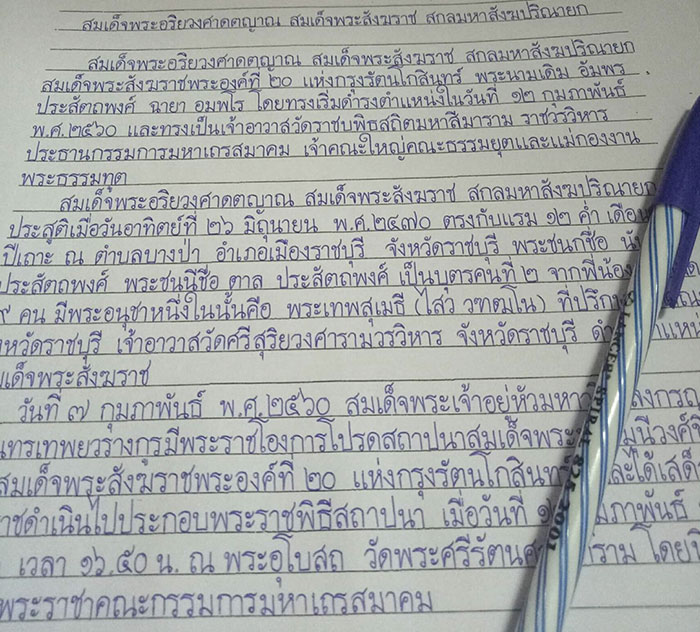 สมเด็จพระอริยวงศาคตญาณ สมเด็จพระสังฆราช สกลมหาสังฆปริณายก
สมเด็จพระอริยวงศาคตญาณ สมเด็จพระสังฆราช สกลมหาสังฆปริณายก
สมเด็จพระสังฆราชพระองค์ที่ ๒๐ แห่งกรุงรัตนโกสินทร์ พระนามเดิม อัมพร
ประสัตถพงศ์ ฉายา อมฺพโร โดยทรงเริ่มดำรงตำแหน่งในวันที่ ๑๒ กุมภาพันธ์
พ.ศ.๒๕๖๐ และทรงเป็นเจ้าอาวาสวัดราชบพิธสถิตมหาสีมาราม ราชวรวิหาร
ประธานกรรมการมหาเถรสมาคม เจ้าคณะใหญ่คณะธรรมยุตและแม่กองงาน
พระธรรมทูต
สมเด็จพระอริยวงศาคตญาณ สมเด็จพระสังฆราช สกลมหาสังฆปริณายก
ประสูติเมื่อวันอาทิตย์ที่ ๒๖ มิถุนายน พ.ศ.๒๔๗๐ ตรงกับแรม ๑๒ ค่ำ เดือน
ปีเถาะ ณ ตำบลบางป่า อำเภอเมืองราชบุรี จังหวัดราชบุรี พระชนกชื่อ
ประสัตถพงศ์ พระชนนีชื่อ ตาล ประสัตถพงศ์ เป็นบุตรคนที่ ๒ จากพี่น้อง
๙ คน มีพระอนุชาหนึ่งในนั้นคือ พระเทพสุเมธี (ไสว วฑฺฒโน) ที่ปรึกษา
หวัดราชบุรี เจ้าอาวาสวัดศรีสุริยวงศารามวรวิหาร จังหวัดราชบุรี
มเด็จพระสังฆราช
วันที่ ๗ กุมภาพันธ์ พ.ศ.๒๕๖๐ สมเด็จพระเจ้าอยู่หัวมหา ลงกรณ
นทรเทพยวรางกูรมีพระราชโองการโปรดสถาปนาสมเด็จพระ มุนีวงศ์
สมเด็จพระสังฆราชพระองค์ที่ ๒๐ แห่งกรุงรัตนโกสินท ละได้เสด็
าชดำเนินไปประกอบพระราชพิธีสถาปนา เมื่อวันที่ ๑ มภาพันธ์
เวลา ๑๖.๕๐ น. ณ พระอุโบสถ วัดพระศรีรัตนศา าราม โดย
พระราชาคณะกรรมการมหาเถรสมาคม